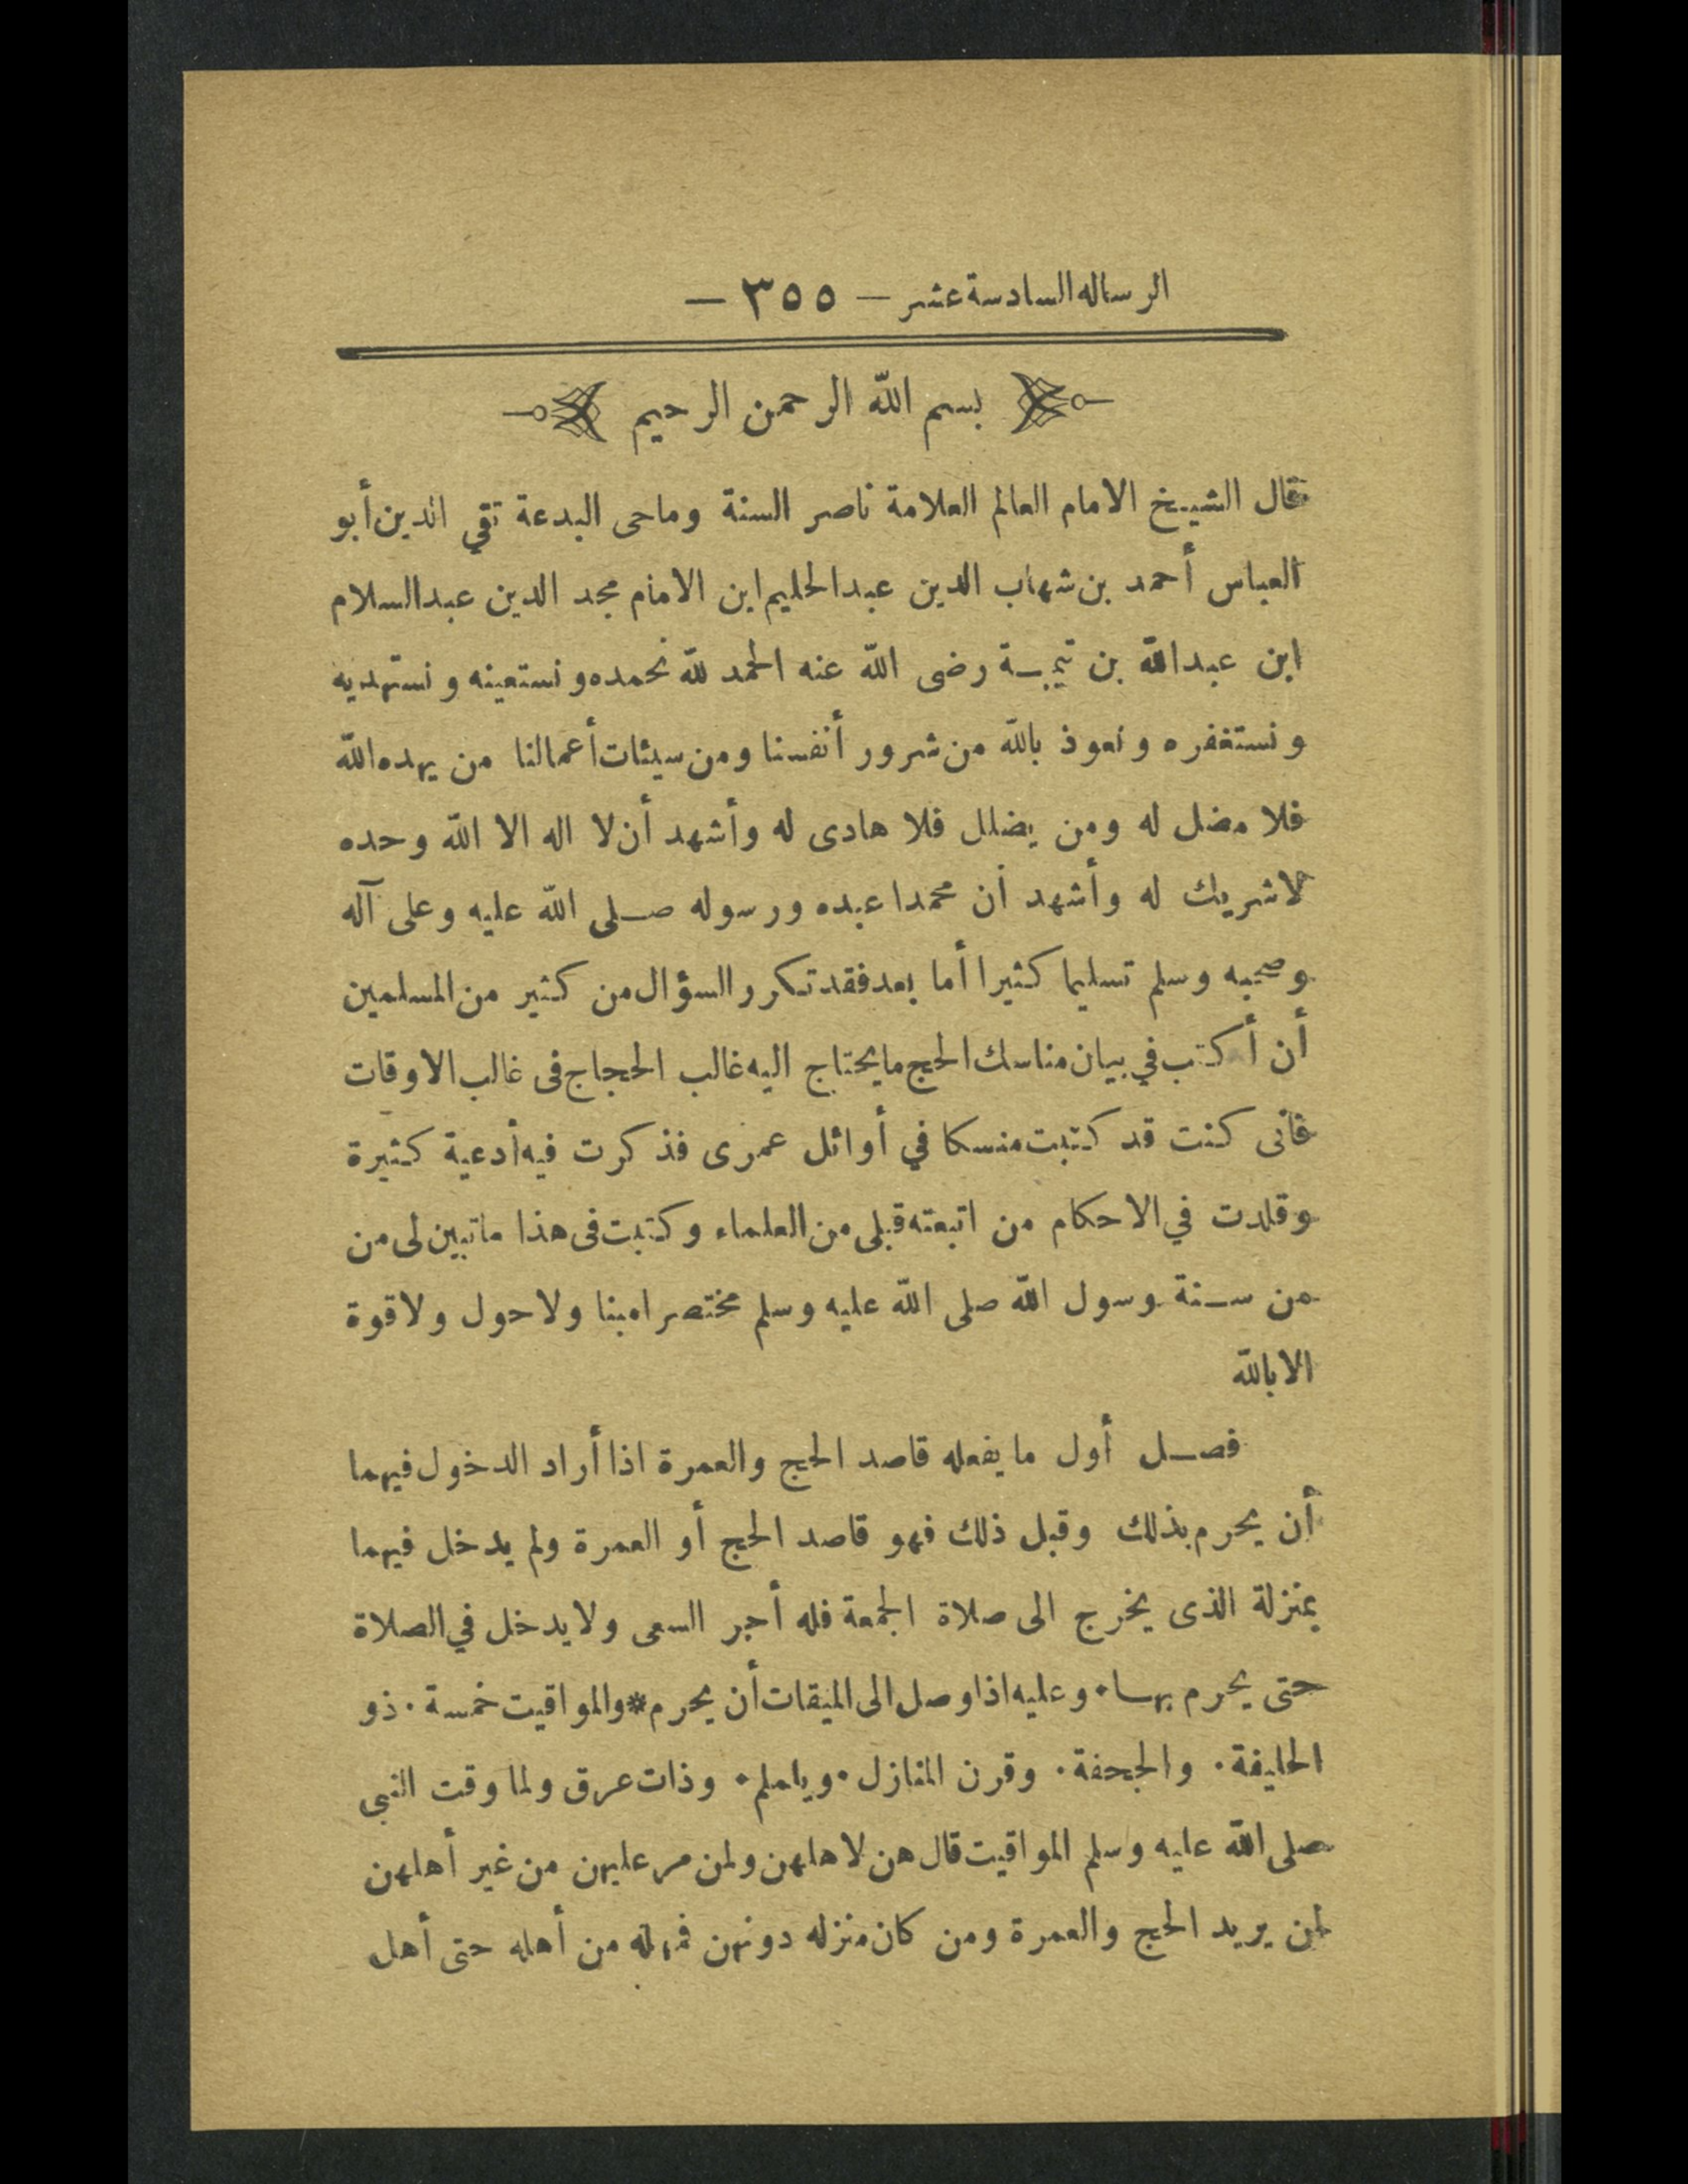 الرساله السادسة عشر — ٣٥٥ —
بسم الله الرحمن الرحيم
قال الشيخ الامام العالم العلامة ناصر السنة وماحى البدعة تقي الدين أبو
العباس أحمد بن شهاب الدين عبد الحليم ابن الامام مجد الدين عبد السلام
ابن عبد الله بن تيمية رضى الله عنه الحمد لله نحمده ونستعينه ونستهديه
ونستغفره ونعوذ بالله من شرور أنفسنا ومن سيئات أعمالنا من يهده الله
فلا مضل له ومن يضلل فلا هادى له وأشهد أن لا اله الا الله وحده
لا شريك له وأشهد أن محمدا عبده ورسوله صلى الله عليه وعلى آله
وصحبه وسلم تسليما كثيرا أما بعد فقد تكرر السؤال من كثير من المسلمين
أن أكتب في بيان مناسك الحج ما يحتاج اليه غالب الحجاج فى غالب الاوقات
فانى كنت قد كتبت منسكا في أوائل عمرى فذكرت فيه أدعية كثيرة
وقلدت في الاحكام من اتبعته قبلى من العلماء وكتبت فى هذا ما تبين لى من
من سنة رسول الله صلى الله عليه وسلم مختصرا مبنا ولا حول ولا قوة
الا بالله
فصل أول ما يفعله قاصد الحج والعمرة اذا أراد الدخول فيهما
أن يحرم بذلك وقبل ذلك فهو قاصد الحج أو العمرة ولم يدخل فيهما
بمنزلة الذى يخرج الى صلاة الجمعة فله أجر السعى ولا يدخل في الصلاة
حتى يحرم بها٠ وعليه اذا وصل الى الميقات أن يحرم*والمواقيت خمسة٠ ذو
الحليفة٠ والجحفة٠ وقرن المنازل٠ ويلملم٠ وذات عرق ولما وقت النبى
صلى الله عليه وسلم المواقيت قال هن لاهلهن ولمن مر عليهن من غير أهلهن
لمن يريد الحج والعمرة ومن كان منزله دونهن فمهله من أهله حتى أهل